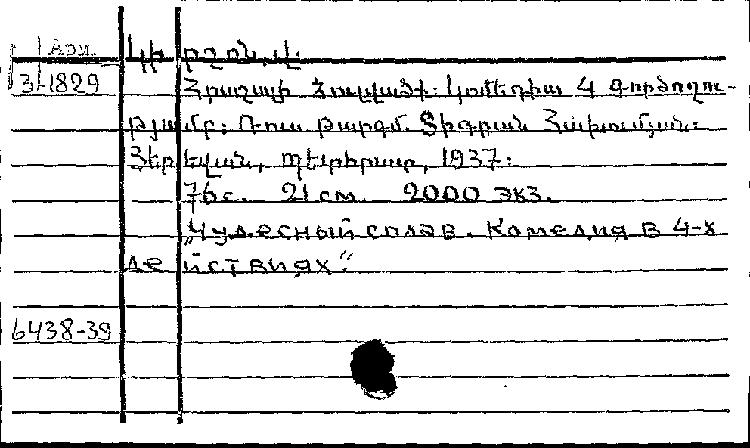 Арм.
Կիրշոն, Վ.
3-1829
Հրաշալի ձուլվածք: Կոմեդիա 4 գործողու-
թյամբ: Ռուս. թարգմ. Տիգրան Հախումյան:
Յերևան, Պետհրատ, 1937:
76 с. 21 см. 2000 экз.
„Чудесный сплав. Комедия в 4-х
действиях“.
6438-39